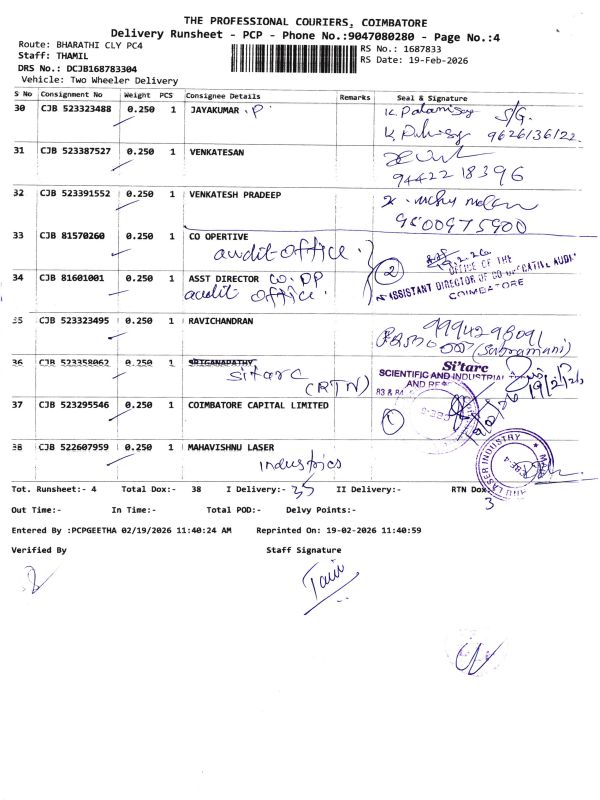 THE PROFESSIONAL COURIERS, COIMBATORE
Delivery Runsheet - PCP - Phone No.:9047080280 - Page No.:4
Route: BHARATHI CLY PC4
Staff: THAMIL
DRS No.: DCJB168783304
Vehicle: Two Wheeler Delivery
RS No.: 1687833
RS Date: 19-Feb-2026
S No Consignment No Weight PCS Consignee Details Remarks Seal & Signature
30 CJB 523323488 0.250 1 JAYAKUMAR . P.
S/G.
9626136122
31 CJB 523387527 0.250 1 VENKATESAN
9442218396
32 CJB 523391552 0.250 1 VENKATESH PRADEEP
9600975900
33 CJB 81570260 0.250 1 CO OPERTIVE
audit-office.
34 CJB 81601001 0.250 1 ASST DIRECTOR CO. OP
audit office.
2
OFFICE OF THE
ASSISTANT DIRECTOR OF CO-OPERATIVE AUDIT
COIMBATORE
35 CJB 523323495 0.250 1 RAVICHANDRAN
9994298091
(Subramani)
36 CJB 523358062 0.250 1 SRIGANAPATHY
Sitarc
(RTN)
Si'tarc
SCIENTIFIC AND INDUSTRIAL
AND RE
83 & 84
19/2/26
37 CJB 523295546 0.250 1 COIMBATORE CAPITAL LIMITED
1
38 CJB 522607959 0.250 1 MAHAVISHNU LASER
Industries
LASER INDUSTRY
Tot. Runsheet:- 4 Total Dox:- 38 I Delivery:- 35 II Delivery:- RTN Dox:- 3
Out Time:- In Time:- Total POD:- Delvy Points:-
Entered By :PCPGEETHA 02/19/2026 11:40:24 AM Reprinted On: 19-02-2026 11:40:59
Verified By Staff Signature